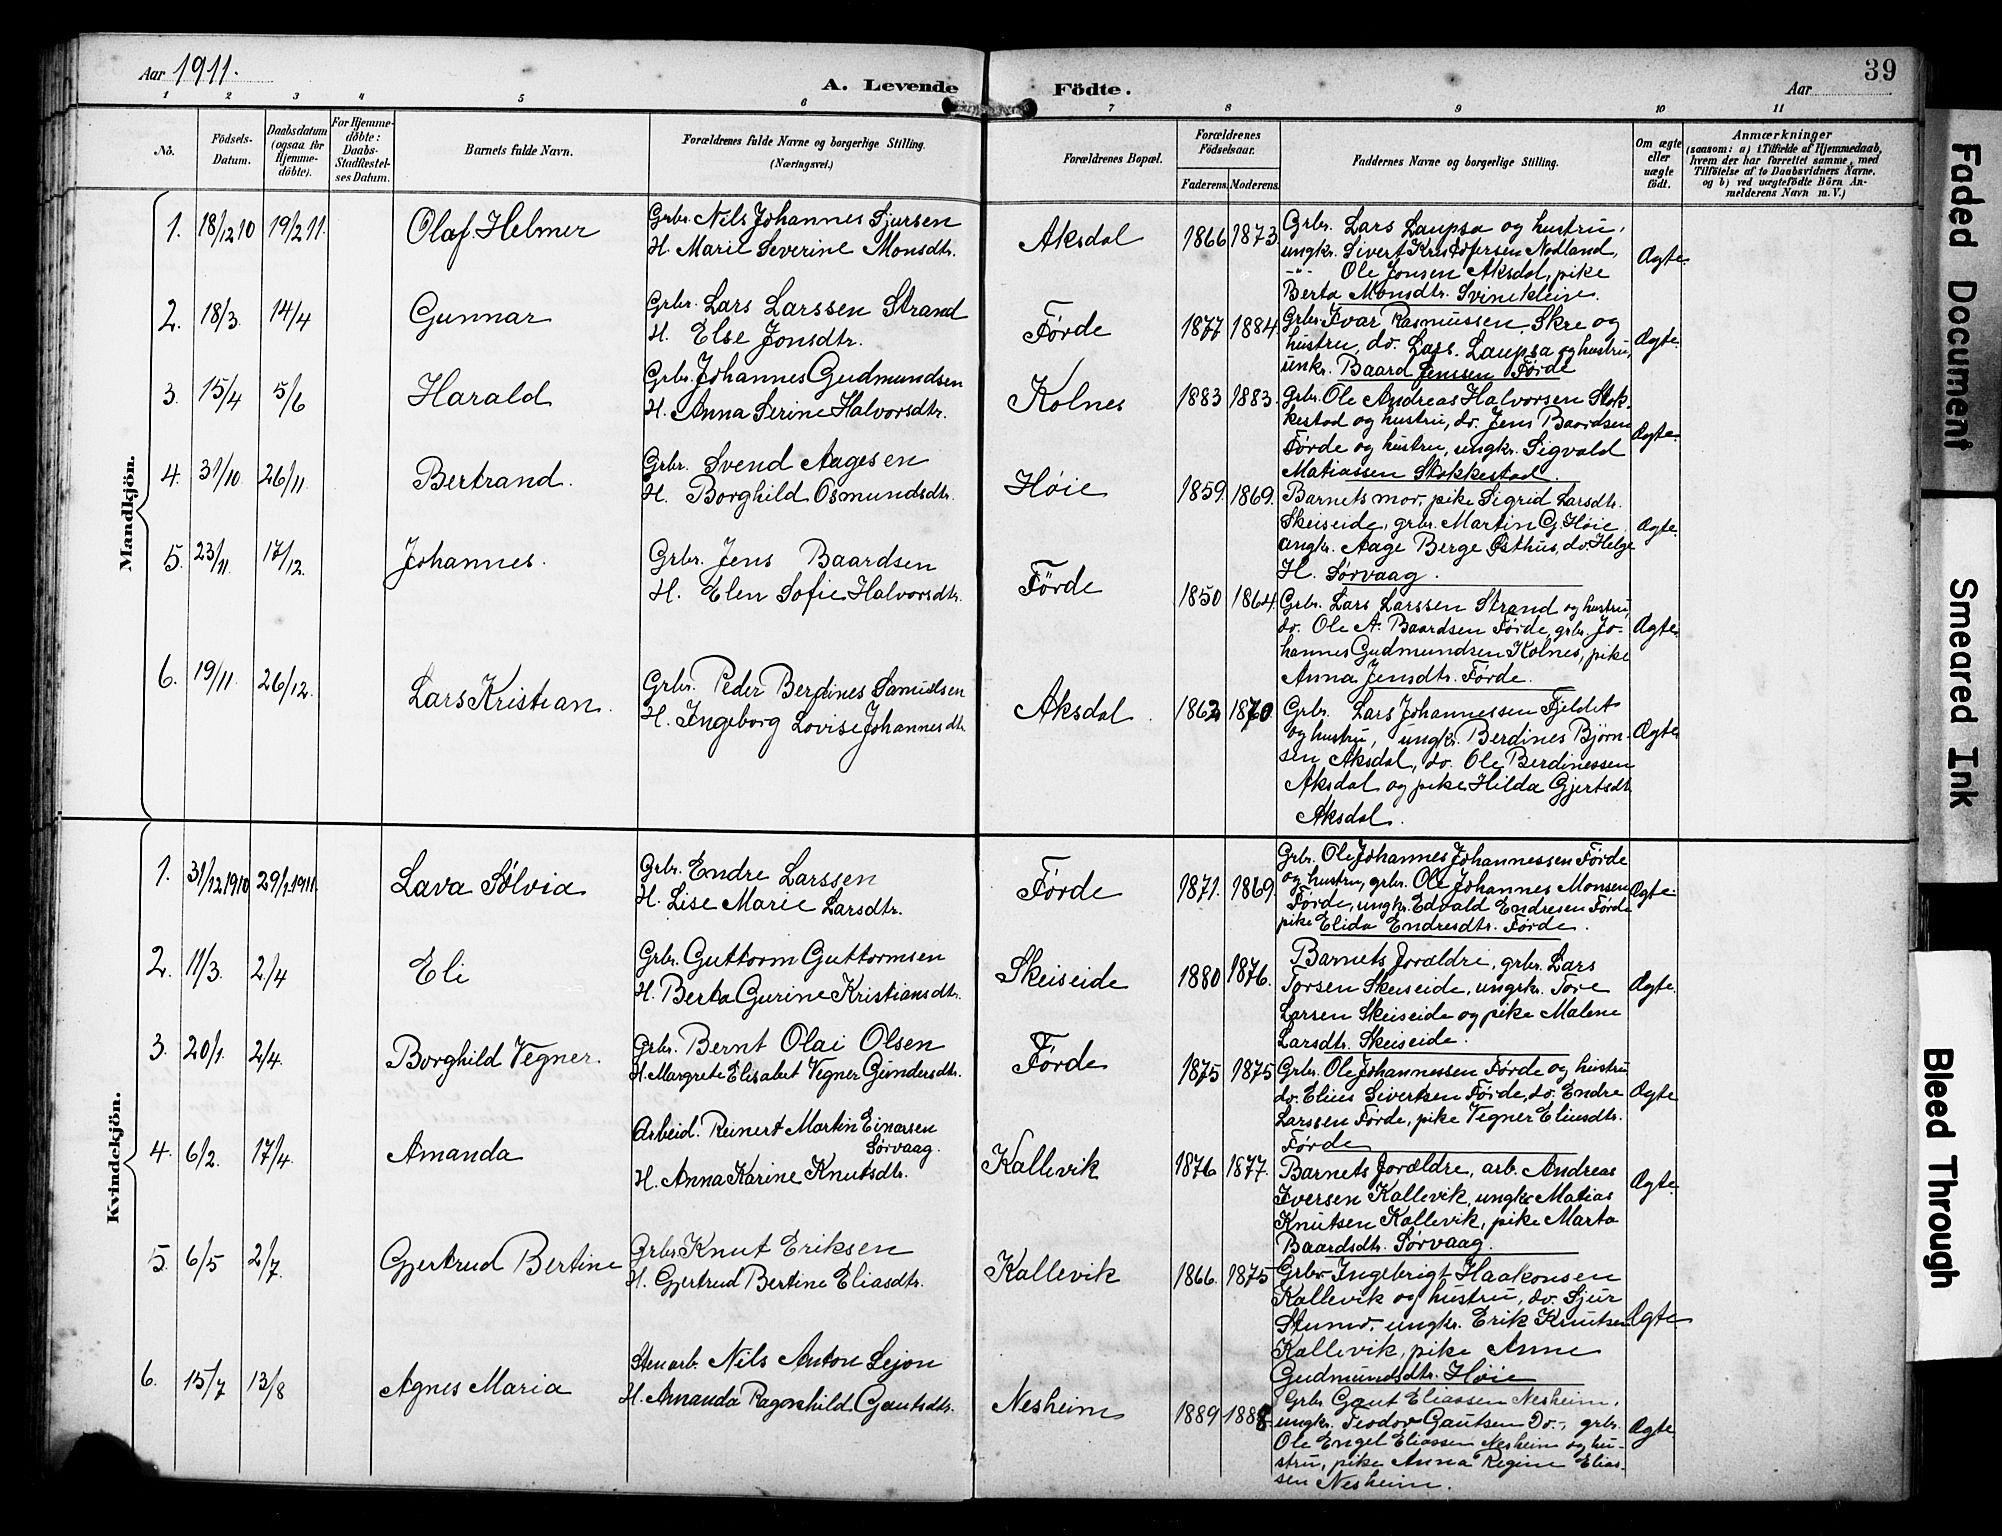 Aar 1911.
A. Levende Födte.
Aar
39
1 2 3 4 5 6 7 8 9 10 11
Nö.
Födsels-Datum.
Daabsdatum (ogsaa för Hjemme-döbte).
For Hjemme-döbte: Daabs-Stadfæstel-ses Datum.
Barnets fulde Navn.
Forældrenes fulde Navne og borgerlige Stilling. (Næringsvei.)
Forældrenes Bopæl.
Forældrenes Födselsaar.
Faderens. Moderens.
Faddernes Navne og borgerlige Stilling.
Om ægte eller uægte födt.
Anmærkninger
(saasom: a) i Tilfælde af Hjemmedaab, hvem der har forrettet samme, med Tilföielse af to Daabsvidners Navne, og b) ved uægtefödte Börn An-melderens Navn m. V.)
Mandkjön.
1. 18/12 10 19/2 11. Olaf Helmer
Grbr. Nils Johannes Sjursen
H. Marie Severine Monsdtr.
Aksdal 1866 1873.
Grbr. Lars Laupsa og hustru,
ungkr. Sivert Kristofersen Nodland,
-"- Ole Jonsen Aksdal, pike
Berta Monsdtr. Svinekleive.
Ægte.
2. 18/3. 14/4 Gunnar
Grbr. Lars Larssen Strand
H. Else Jonsdtr.
Førde 1877 1884.
Grbr. Ivar Rasmussen Skre og
hustru, do. Lars Laupsa og hustru,
unkr. Baard Jenssen Førde
Ægte.
3. 15/4 5/6 Harald
Grbr. Johannes Gudmundsen
H. Anna Serine Halvorsdtr.
Kolnes 1883 1883.
Grbr. Ole Andreas Halvorsen Stok-
kestad og hustru, do. Jens Baardsen
Førde og hustru, ungkr. Sigvald
Matiassen Stokkestad.
Ægte.
4. 31/10. 26/11. Bertrand.
Grbr. Svend Aagesen
H. Borghild Osmundsdtr.
Høie 1859. 1869.
Barnets mor, pike Sigrid Larsdtr.
Skeiseide, grbr. Martin G. Høie,
ungkr. Aage Berge Østhus, do. Helge
H. Sørvaag.
Ægte.
5. 23/11. 17/12. Johannes.
Grbr. Jens Baardsen
H. Elen Sofie Halvorsdtr.
Førde 1850 1864.
Grbr. Lars Larssen Strand og hustru,
do. Ole A. Baardsen Førde, grbr. Jo-
hannes Gudmundsen Kolnes, pike
Anna Jensdtr. Førde.
Ægte.
6. 19/11. 26/12. Lars Kristian.
Grbr. Peder Berdines Samuelsen
H. Ingeborg Lovise Johannesdtr.
Aksdal. 1862 1870.
Grbr. Lars Johannessen Fjeldet
og hustru, ungkr. Berdines Bjørn-
sen Aksdal, do. Ole Berdinessen
Aksdal og pike Hilda Gjertsdtr.
Aksdal.
Ægte.
Kvindekjön.
1. 31/12.1910 29/1.1911. Lava Sølvia
Grbr. Endre Larssen
H. Lise Marie Larsdtr.
Førde 1871. 1869.
Grbr. Ole Johannes Johannessen Førde
og hustru, grbr. Ole Johannes Monsen
Førde, ungkr. Edvald Endresen Førde
pike Elida Endresdtr. Førde.
Ægte.
2. 11/3. 2/4 Eli
Grbr. Guttorm Guttormsen
H. Berta Gurine Kristiansdtr.
Skeiseide 1880 1876.
Barnets forældre, grbr. Lars
Torsen Skeiseide, ungkr. Tore
Larsen Skeiseide og pike Malene
Larsdtr. Skeiseide.
Ægte.
3. 20/1. 2/4. Borghild Vegner.
Grbr. Bernt Olai Olsen
H. Margrete Elisabet Vegner Gundersdtr.
Førde 1875 1875
Grbr. Ole Johannessen Førde og hustru
do. Elius Sivertsen Førde, do. Endre
Larssen Førde, pike Vegner Eliusdtr.
Førde
Ægte
4. 6/2. 17/4. Amanda
Arbeid. Reinert Martin Einarsen
Sørvaag.
H. Anna Karine Knutsdtr.
Kallevik 1876 1877.
Barnets forældre, arb. Andreas
Iversen Kallevik, ungkr. Matias
Knutsen Kallevik, pike Marta
Baardsdtr. Sørvaag.
Ægte.
5. 6/5 2/7. Gjertrud Bertine
Grbr. Knut Eriksen
H. Gjertrud Bertine Eliasdtr.
Kallevik 1866. 1875
Grbr. Ingebrigt Haakonsen
Kallevik og hustru, do. Sjur
Stumo, ungkr. Erik Knutsen
Kallevik, pike Anne
Gudmundsdtr. Høie
Ægte.
6. 15/7 13/8 Agnes Maria
Stenarb. Nils Anton Lejon
H. Amanda Ragnhild Gautsdtr.
Nesheim 1889 1888
Grbr. Gaut Eliassen Nesheim,
ungkr. Teodor Gautsen Do., grbr.
Ole Engel Eliassen Nesheim og hu-
stru, pike Anna Regine Elias-
sen Nesheim.
Ægte
Faded Document
Smeared Ink
Bleed Through